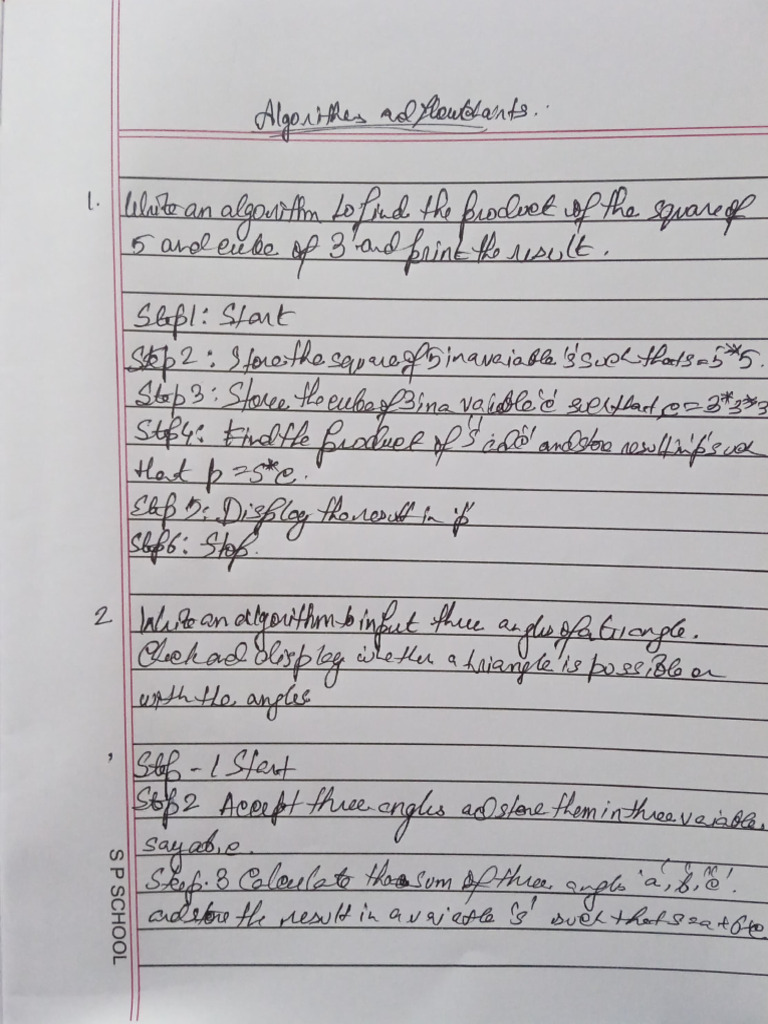 Algorithms ad flowcharts.
1. Write an algorithm to find the product of the square of
5 and cube of 3 and print the result.
Step1: Start
Step 2: Store the square of 5 in a vaiable 's' such that s=5*5.
Step 3: Store the cube of 3 in a vaiable 'c' such that c=3*3*3
Step4: Find the product of 's' and 'c' and store result in 'p' such
that p=s*c.
Step 5: Display the result in 'p'
Step6: Stop.
2 Write an algorithm to input three angles of a triangle.
Check ad display whether a triangle is possible or
with the angles
Step-1 Start
Step2 Accept three angles ad store them in three vaiable.
say a,b,c.
Step.3 Calculate the sum of three angle 'a', 'b', 'c'.
and store the result in a vaiable 's' such that s=a+b+c
S P SCHOOL